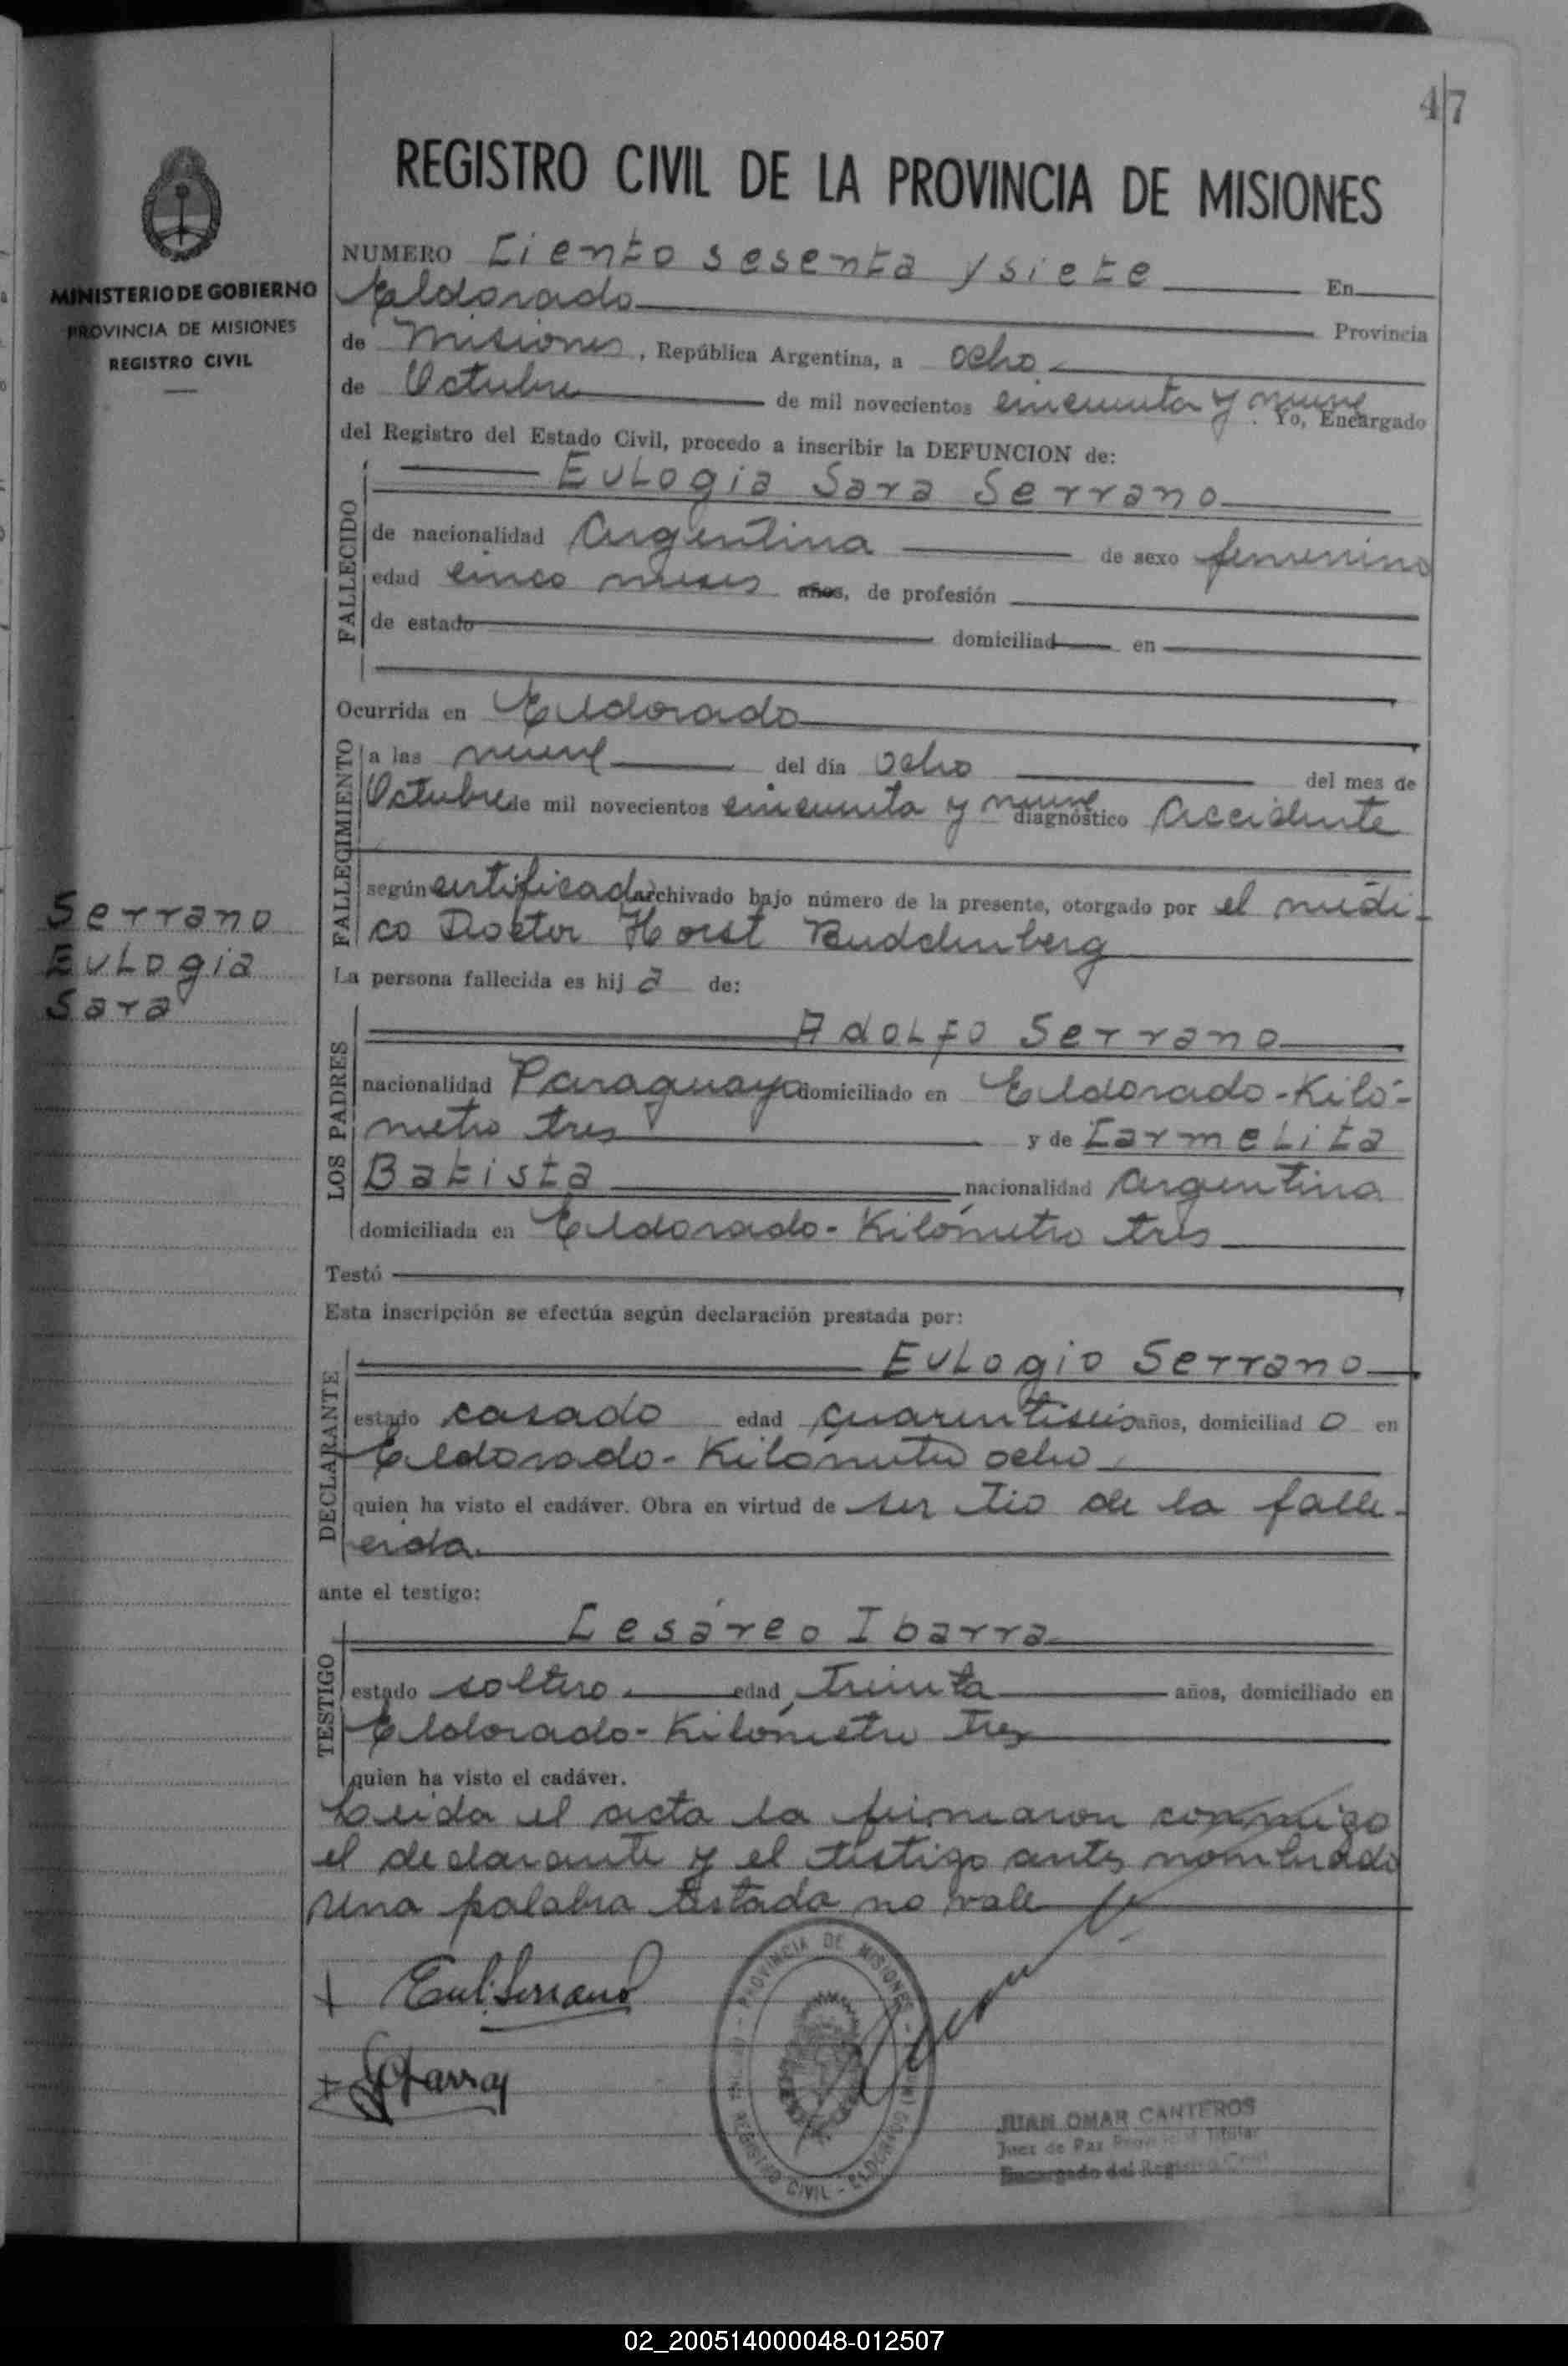 47
REGISTRO CIVIL DE LA PROVINCIA DE MISIONES
MINISTERIO DE GOBIERNO
PROVINCIA DE MISIONES
REGISTRO CIVIL
NUMERO Ciento sesenta y siete En
Eldorado Provincia
de Misiones, República Argentina, a ocho
de Octubre de mil novecientos cincuenta y nueve. Yo, Encargado
del Registro del Estado Civil, procedo a inscribir la DEFUNCION de:
Eulogia Sara Serrano
FALLECIDO
de nacionalidad Argentina de sexo femenino
edad cinco meses años, de profesión
de estado domiciliad en
Ocurrida en Eldorado
FALLECIMIENTO
a las nueve del día ocho del mes de
Octubre de mil novecientos cincuenta y nueve diagnóstico Accidente
según certificado archivado bajo número de la presente, otorgado por el médi-
co Doctor Horst Buddenberg
Serrano
Eulogia
Sara
La persona fallecida es hija de:
LOS PADRES
Adolfo Serrano
nacionalidad Paraguaya domiciliado en Eldorado-Kiló-
metro tres y de Carmelita
Batista nacionalidad Argentina
domiciliada en Eldorado-Kilómetro tres
Testó
Esta inscripción se efectúa según declaración prestada por:
DECLARANTE
Eulogio Serrano
estado casado edad cuarentiseis años, domiciliado en
Eldorado-Kilómetro ocho
quien ha visto el cadáver. Obra en virtud de ser tio de la falle-
cida.
ante el testigo:
TESTIGO
Cesáreo Ibarra
estado soltero edad treinta años, domiciliado en
Eldorado-Kilómetro tres
quien ha visto el cadáver.
Leida el acta la firmaron conmigo
el declarante y el testigo antes nombrado
una palabra testada no vale
+ Eul. Serrano
+ Ibarra
PROVINCIA DE MISIONES
REGISTRO CIVIL - ELDORADO
JUAN OMAR CANTEROS
Juez de Paz Provincial Titular
Encargado del Registro Civil
02_200514000048-012507